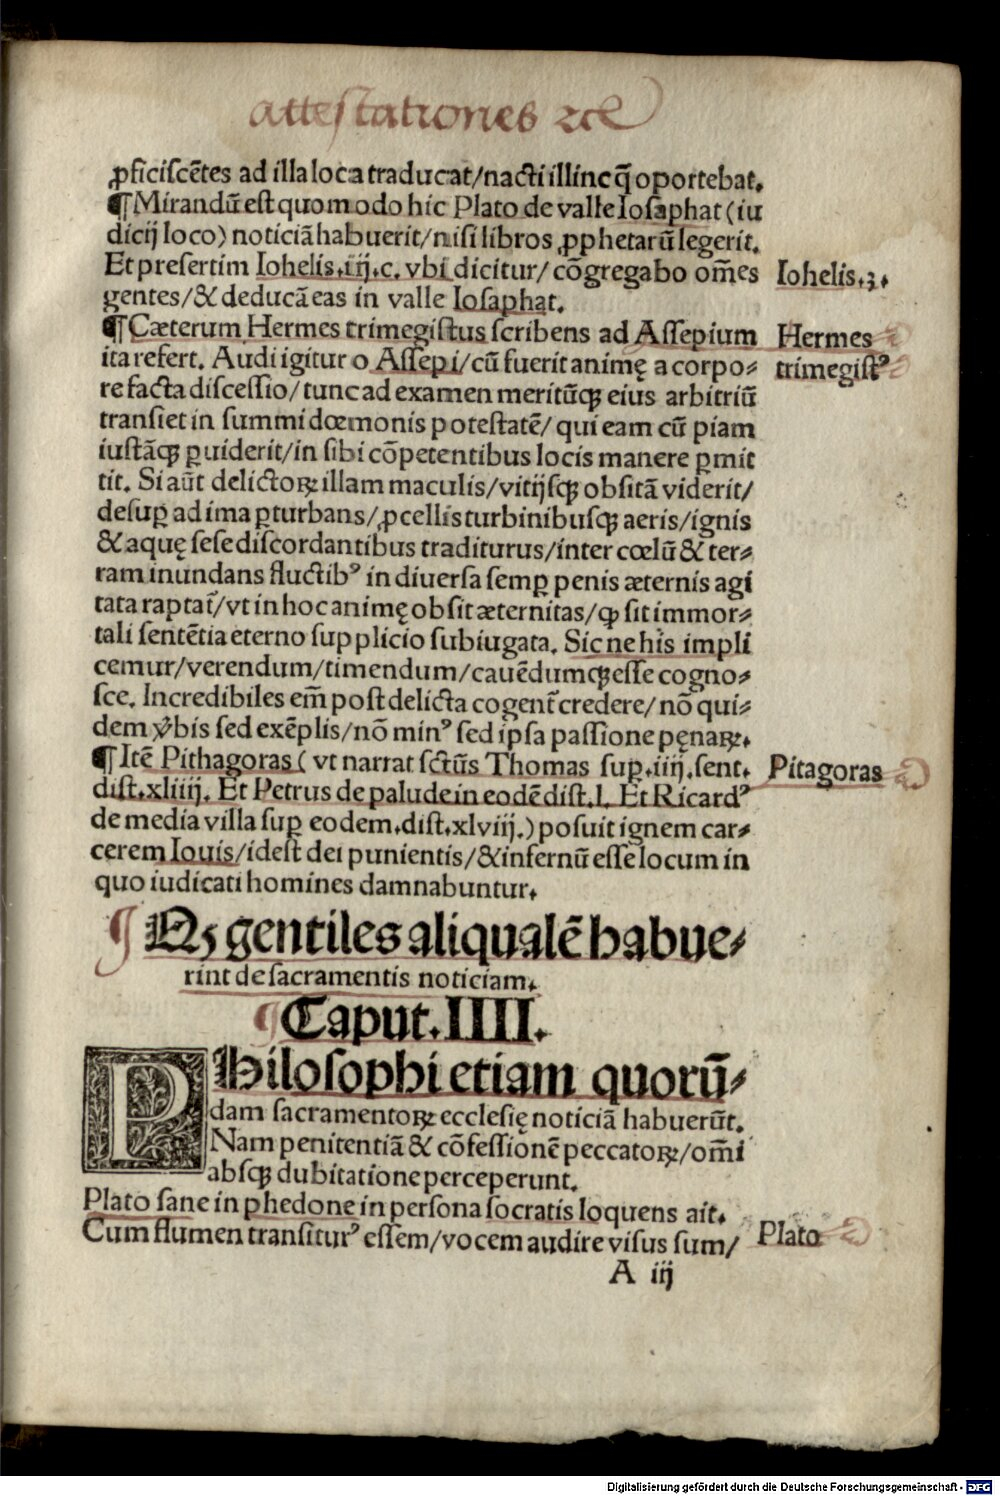 attestationes ⁊cͤ
ꝓficiscẽtes ad illa loca traducat/nacti illinc q̃ oportebat.
¶Mirandũ est quomodo hic Plato de valle Iosaphat (iu
dicij loco) noticiã habuerit/nisi libros ꝓphetarũ legerit.
Et presertim Iohelis.iij.c. vbi dicitur/ cõgregabo om̃es
gentes/& deducã eas in valle Iosaphat.
Iohelis.3.
¶Cæterum Hermes trimegistus scribens ad Assepium
ita refert. Audi igitur o Assepi/cũ fuerit animę a corpo-
re facta discessio/tunc ad examen meritũqꝫ eius arbitriũ
transiet in summi dœmonis potestatẽ/ qui eam cũ piam
iustãqꝫ ꝑuiderit/in sibi cõpetentibus locis manere ꝑmit
tit. Si aũt delictoꝝ illam maculis/vitijsqꝫ obsitã viderit/
desuꝑ ad ima ꝑturbans/ꝓcellis turbinibusqꝫ aeris/ignis
& aquę sese discordantibus traditurus/inter cœlũ & ter-
ram inundans fluctibꝰ in diuersa semꝑ penis æternis agi
tata raptat̃/vt in hoc animę obsit æternitas/ꝙ sit immor-
tali sentẽtia eterno supplicio subiugata. Sic ne his impli
cemur/verendum/timendum/cauẽdumqꝫ esse cogno-
sce. Incredibiles em̃ post delicta cogent̃ credere/ nõ qui-
dem v̾bis sed exẽplis/nõ minꝰ sed ipsa passione pęnaꝝ.
Hermes
trimegistꝰ
¶Itẽ Pithagoras ( vt narrat sctũs Thomas suꝑ.iiij.sent.
dist.xliiij. Et Petrus de palude in eodẽ dist.l. Et Ricardꝰ
de media villa suꝑ eodem.dist.xlviij.) posuit ignem car-
cerem Iouis/idest dei punientis/& infernũ esse locum in
quo iudicati homines damnabuntur.
Pitagoras
¶ Qꝫ gentiles aliqualẽ habue-
rint de sacramentis noticiam.
¶Caput.IIII.
Philosophi etiam quorũ-
dam sacramentoꝝ ecclesię noticiã habuerũt.
Nam penitentiã & cõfessionẽ peccatoꝝ/om̃i
absqꝫ dubitatione perceperunt.
Plato sane in phedone in persona socratis loquens ait.
Cum flumen transiturꝰ essem/vocem audire visus sum/
Plato
A iij
Digitalisierung gefördert durch die Deutsche Forschungsgemeinschaft - DFG